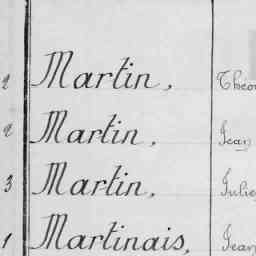 2 Martin, Théo
2 Martin, Jean
3 Martin, Julie
1 Martinais, Jean